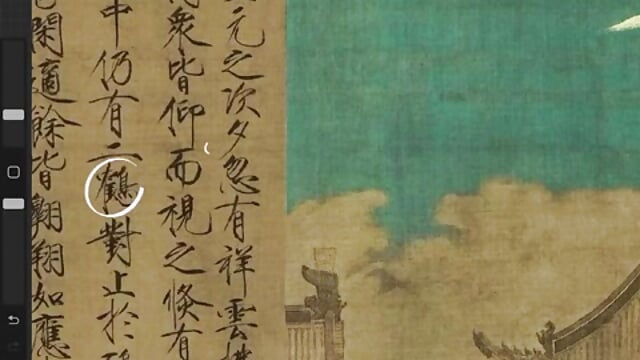 元之次夕忽有祥雲
衆皆仰而視之倏有
中仍有二鶴對止於
閑適餘皆翱翔如應